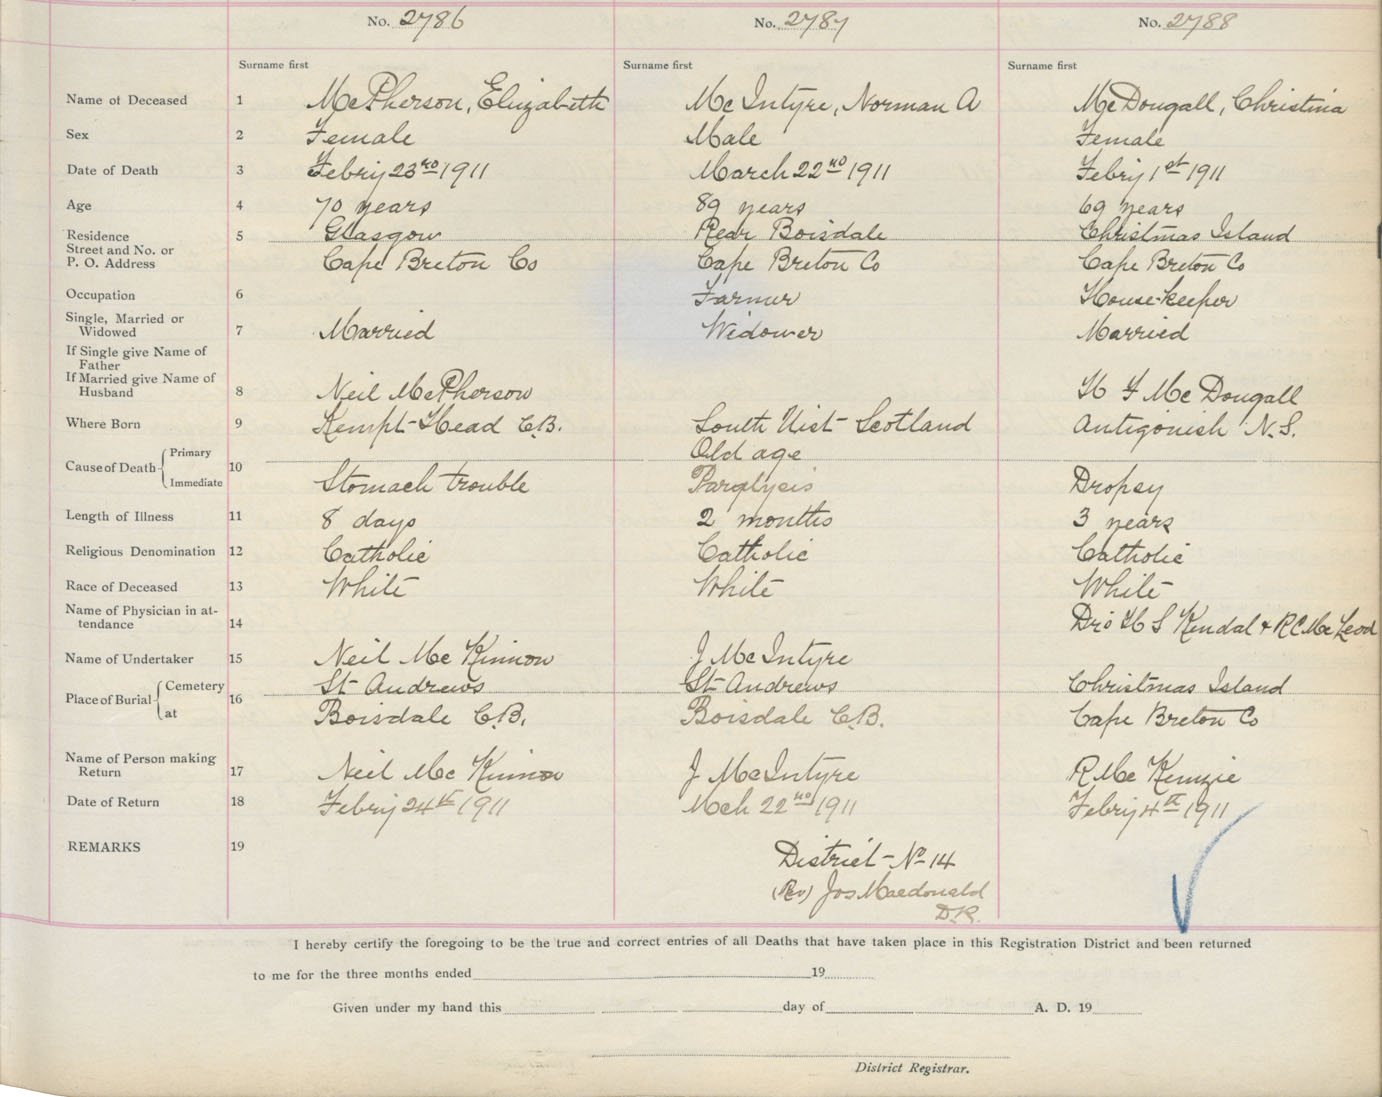 No. 2786 No. 2787 No. 2788
Surname first Surname first Surname first
Name of Deceased 1 McPherson, Elizabeth McIntyre, Norman A McDougall, Christina
Sex 2 Female Male Female
Date of Death 3 Febry 23rd 1911 March 22nd 1911 Febry 1st 1911
Age 4 70 years 89 years 69 years
Residence 5 Glasgow Rear Boisdale Christmas Island
Street and No. or
P. O. Address Cape Breton Co Cape Breton Co Cape Breton Co
Occupation 6 Farmer House-keeper
Single, Married or
Widowed 7 Married Widower Married
If Single give Name of
Father
If Married give Name of
Husband 8 Neil McPherson H F McDougall
Where Born 9 Kempt-Head C.B. South Uist Scotland Antigonish N.S.
Cause of Death Primary 10 Old age
Immediate Stomach trouble Paralysis Dropsy
Length of Illness 11 8 days 2 months 3 years
Religious Denomination 12 Catholic Catholic Catholic
Race of Deceased 13 White White White
Name of Physician in at-
tendance 14 Drs H S Kendal & R C McLeod
Name of Undertaker 15 Neil McKinnon J McIntyre
Place of Burial Cemetery 16 St Andrews St Andrews Christmas Island
at Boisdale C.B. Boisdale C.B. Cape Breton Co
Name of Person making
Return 17 Neil McKinnon J McIntyre R McKenzie
Date of Return 18 Febry 24th 1911 Mch 22nd 1911 Febry 4th 1911
REMARKS 19 District No 14
(Rev) Jos Macdonald
D.R.
I hereby certify the foregoing to be the true and correct entries of all Deaths that have taken place in this Registration District and been returned
to me for the three months ended 19
Given under my hand this day of A. D. 19
District Registrar.